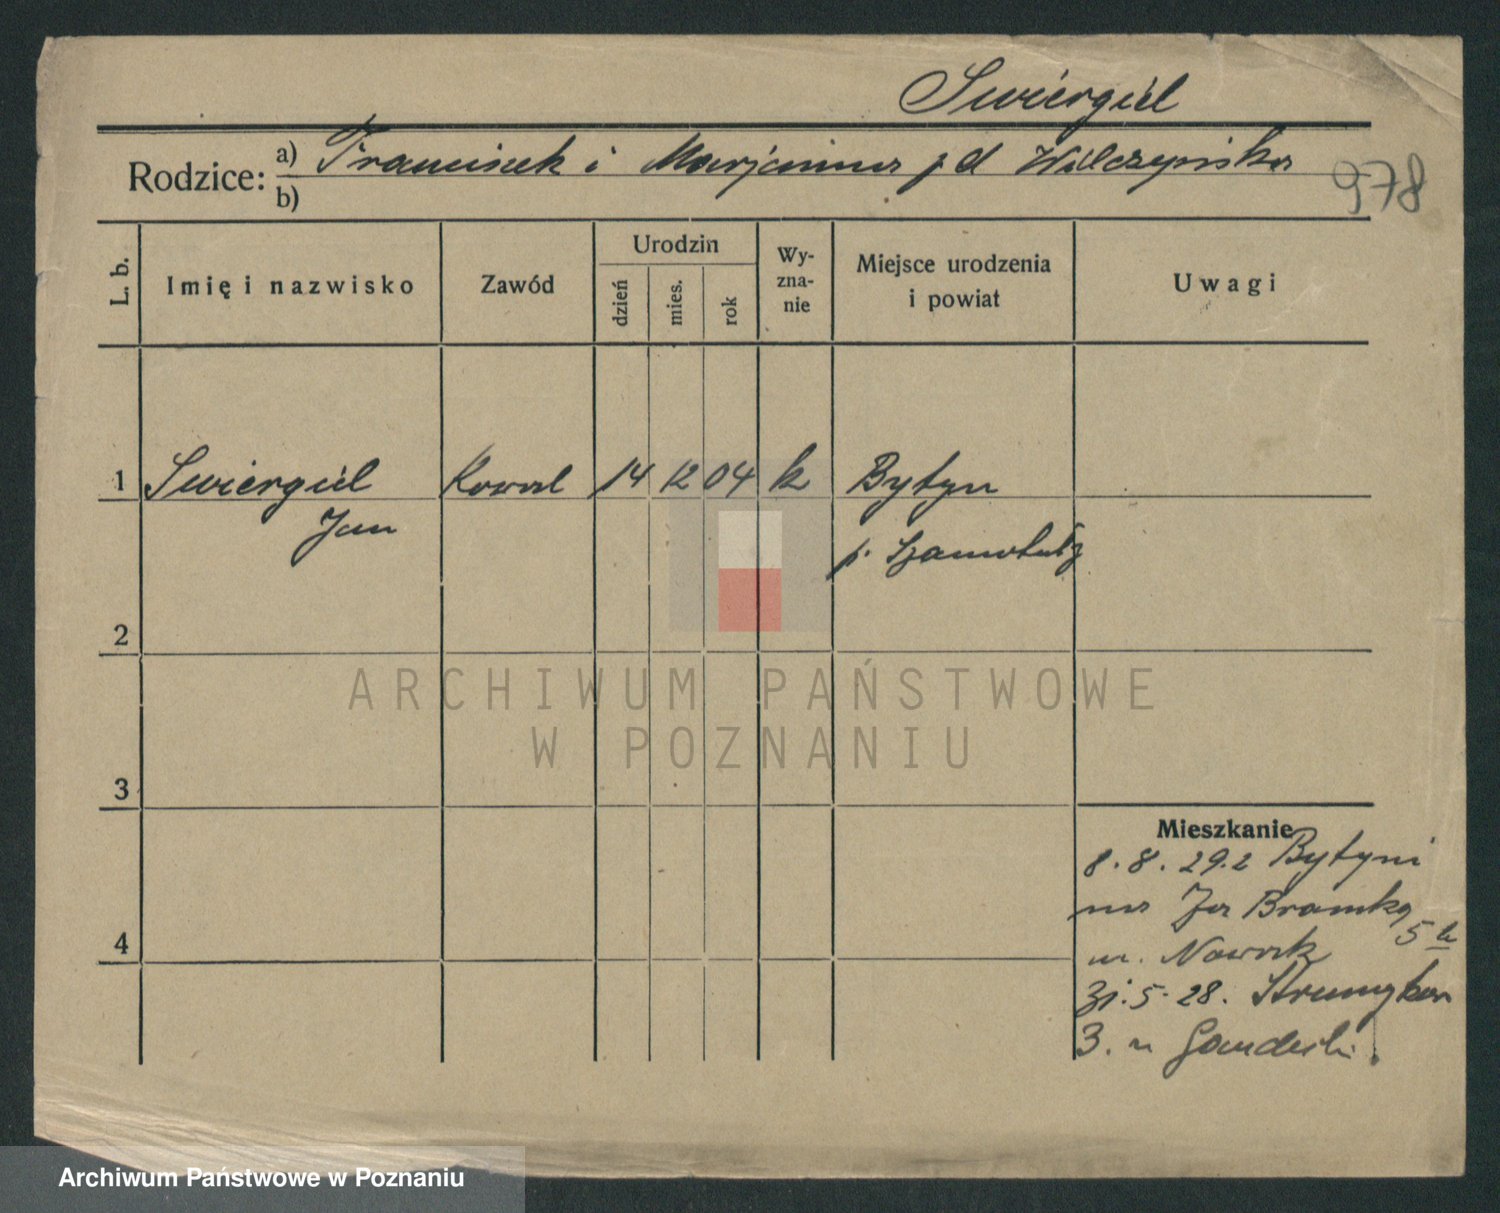 Swiergiel
Rodzice: a) Franciszek i Marjanna z d Wilczyńska
b)
978
L. b.
Imię i nazwisko
Zawód
Urodzin
dzień
mies.
rok
Wy-
zna-
nie
Miejsce urodzenia
i powiat
Uwagi
1 Swiergiel Kowal 14 12 04 k Bytyn
Jan p. Szamotuły
2
ARCHIWUM PAŃSTWOWE
W POZNANIU
3
Mieszkanie
8.8.29. z Bytyni
na Za Bramką
5
4
u. Nowak
31.5.28. Strumykowa
3. u
Archiwum Państwowe w Poznaniu